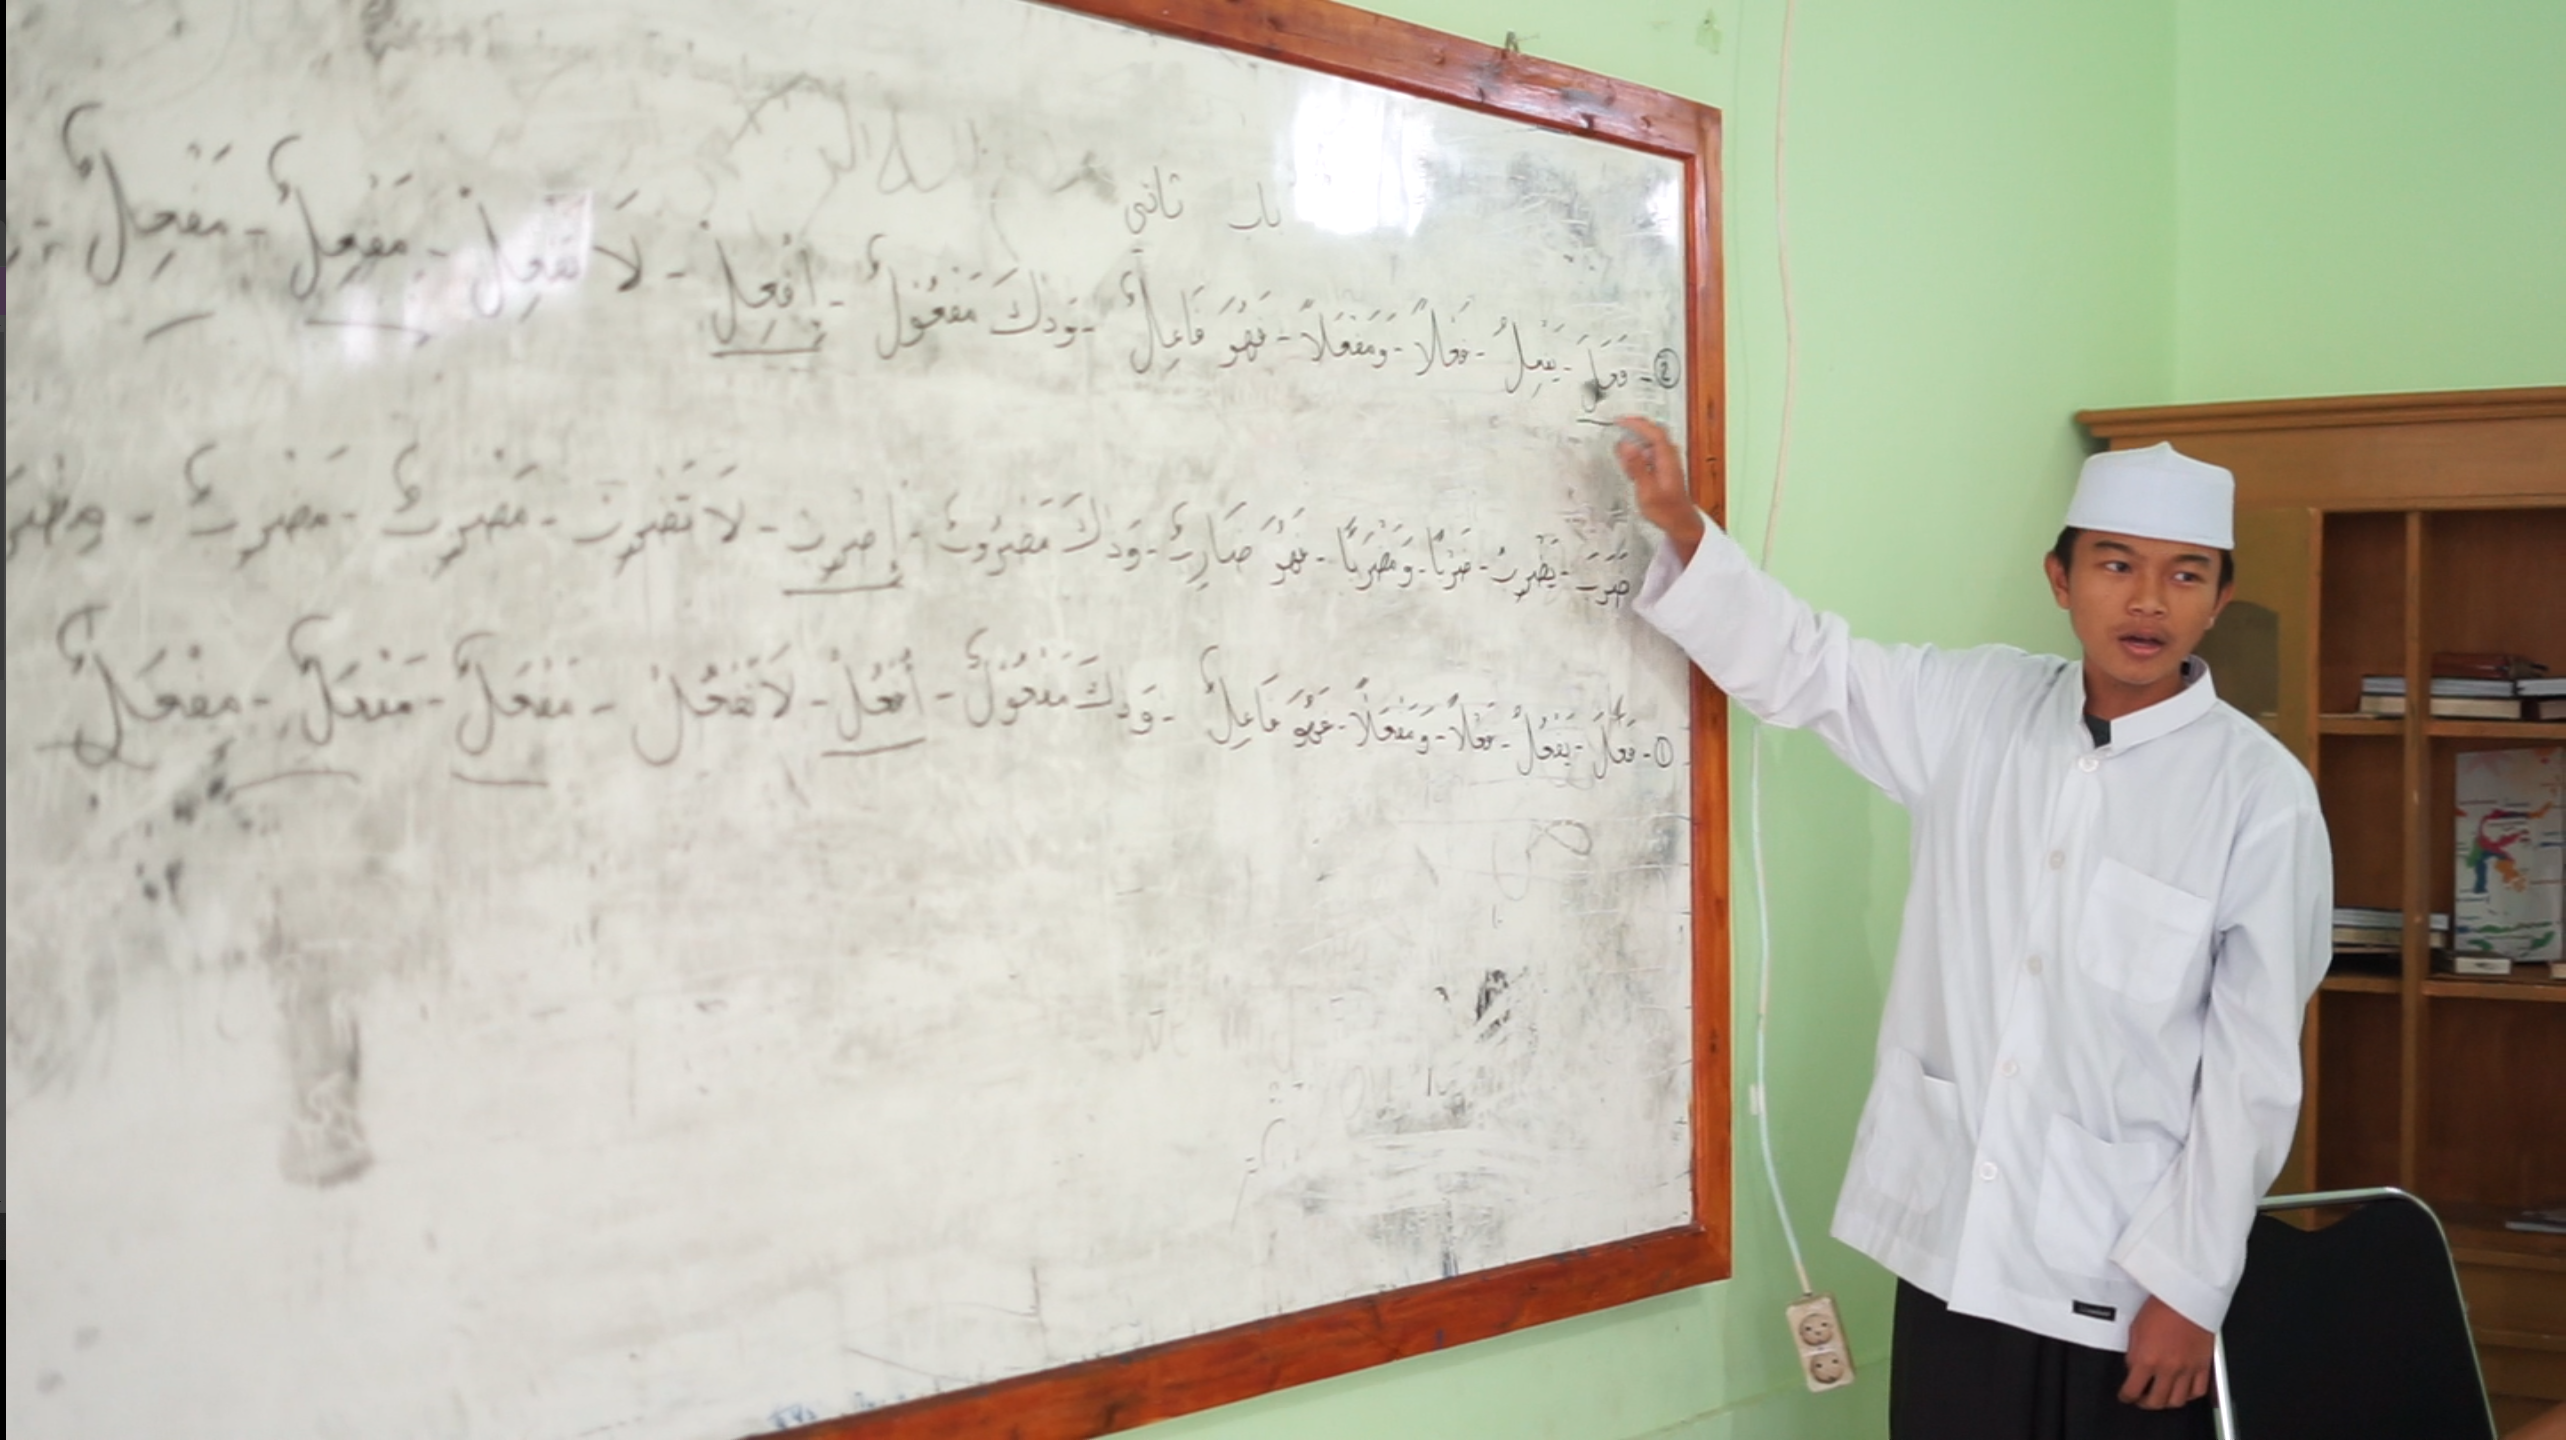 باب ثاني
② - فَعَلَ - يَفْعِلُ - فَعْلًا - وَمَفْعَلًا - فَهُوَ فَاعِلٌ - وَذَكَ مَفْعُوْلٌ - اِفْعِلْ - لَا تَفْعِلْ - مَفْعِلٌ - مَفْعِلٌ -
ضَرَبَ - يَضْرِبُ - ضَرْبًا - وَمَضْرَبًا - فَهُوَ ضَارِبٌ - وَذَكَ مَضْرُوْبٌ - اِضْرِبْ - لَا تَضْرِبْ - مَضْرِبٌ - مَضْرِبٌ -
① - فَعَلَ - يَفْعُلُ - فَعْلًا - وَمَفْعَلًا - فَهُوَ فَاعِلٌ - وَذَكَ مَفْعُوْلٌ - اُفْعُلْ - لَا تَفْعُلْ - مَفْعَلٌ - مَفْعَلٌ - مِفْعَلٌ